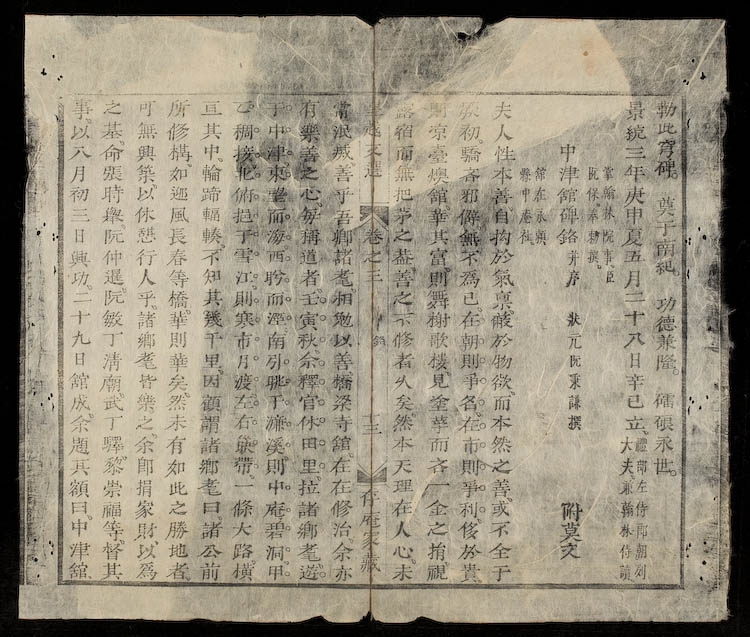 勒此穹碑。奠于南紀。功德兼隆。磻礩永世。
景統三年庚申夏五月二十八日辛巳立。禮部左侍郎朝列大夫兼翰林侍讀
掌翰林院事臣阮保奉精撰 附莫文
中津館碑銘 并序 狀元阮秉謙撰
舘在永賴縣中庵社
夫人性本善自拘於氣禀。蔽於物欲。而本然之善。或不全于
厥初。驕吝邪僻無不爲已。在朝則爭名。在市則爭利。侈於貴
則凉臺燠舘。華其富。則舞榭歌樓。見塗莩而吝一金之捐。視
露宿而無把茅之葢。善之不修者久矣。然本天理在人心。未
常泯滅。善乎吾鄉諸耄。相勉以善。橋梁寺舘。在在修治。余亦
有樂善之心。每稱道者。壬寅秋。余釋官休田里。拉諸鄉耄。遊
于中津。東望而海。西盼而湮。南引眺于濂溪。則中庵碧洞。甲
乙稠接。北俯挹于雪江。則寒市月渡。左右映帶。一條大路。橫
亘其中。輪蹄輻輳。不知其幾千里。因顧謂諸鄉耄曰。諸公前
所修構。如迎風長春等橋。華則華矣。然未有如此之勝地者。
可無興築。以休憇行人乎。諸鄉耄皆樂之。余卽捐家財。以爲
之基。命張時舉。阮仲暹。阮敏。丁清廟。武丁驛。黎崇福等。督其
事。以八月初三日興功。二十九日舘成。余題其額曰。中津舘
越文選 卷之三 銘 三 存庵家藏